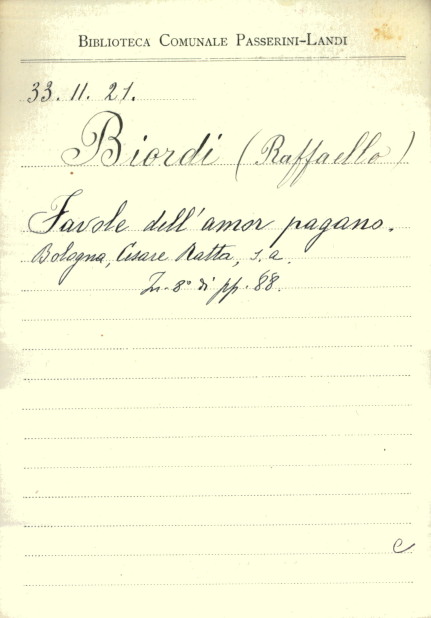 BIBLIOTECA COMUNALE PASSERINI-LANDI
33. 11. 21.
Biordi (Raffaello)
Favole dell'amor pagano.
Bologna, Cesare Ratta, s. a.
In-8° di pp. 88.
c